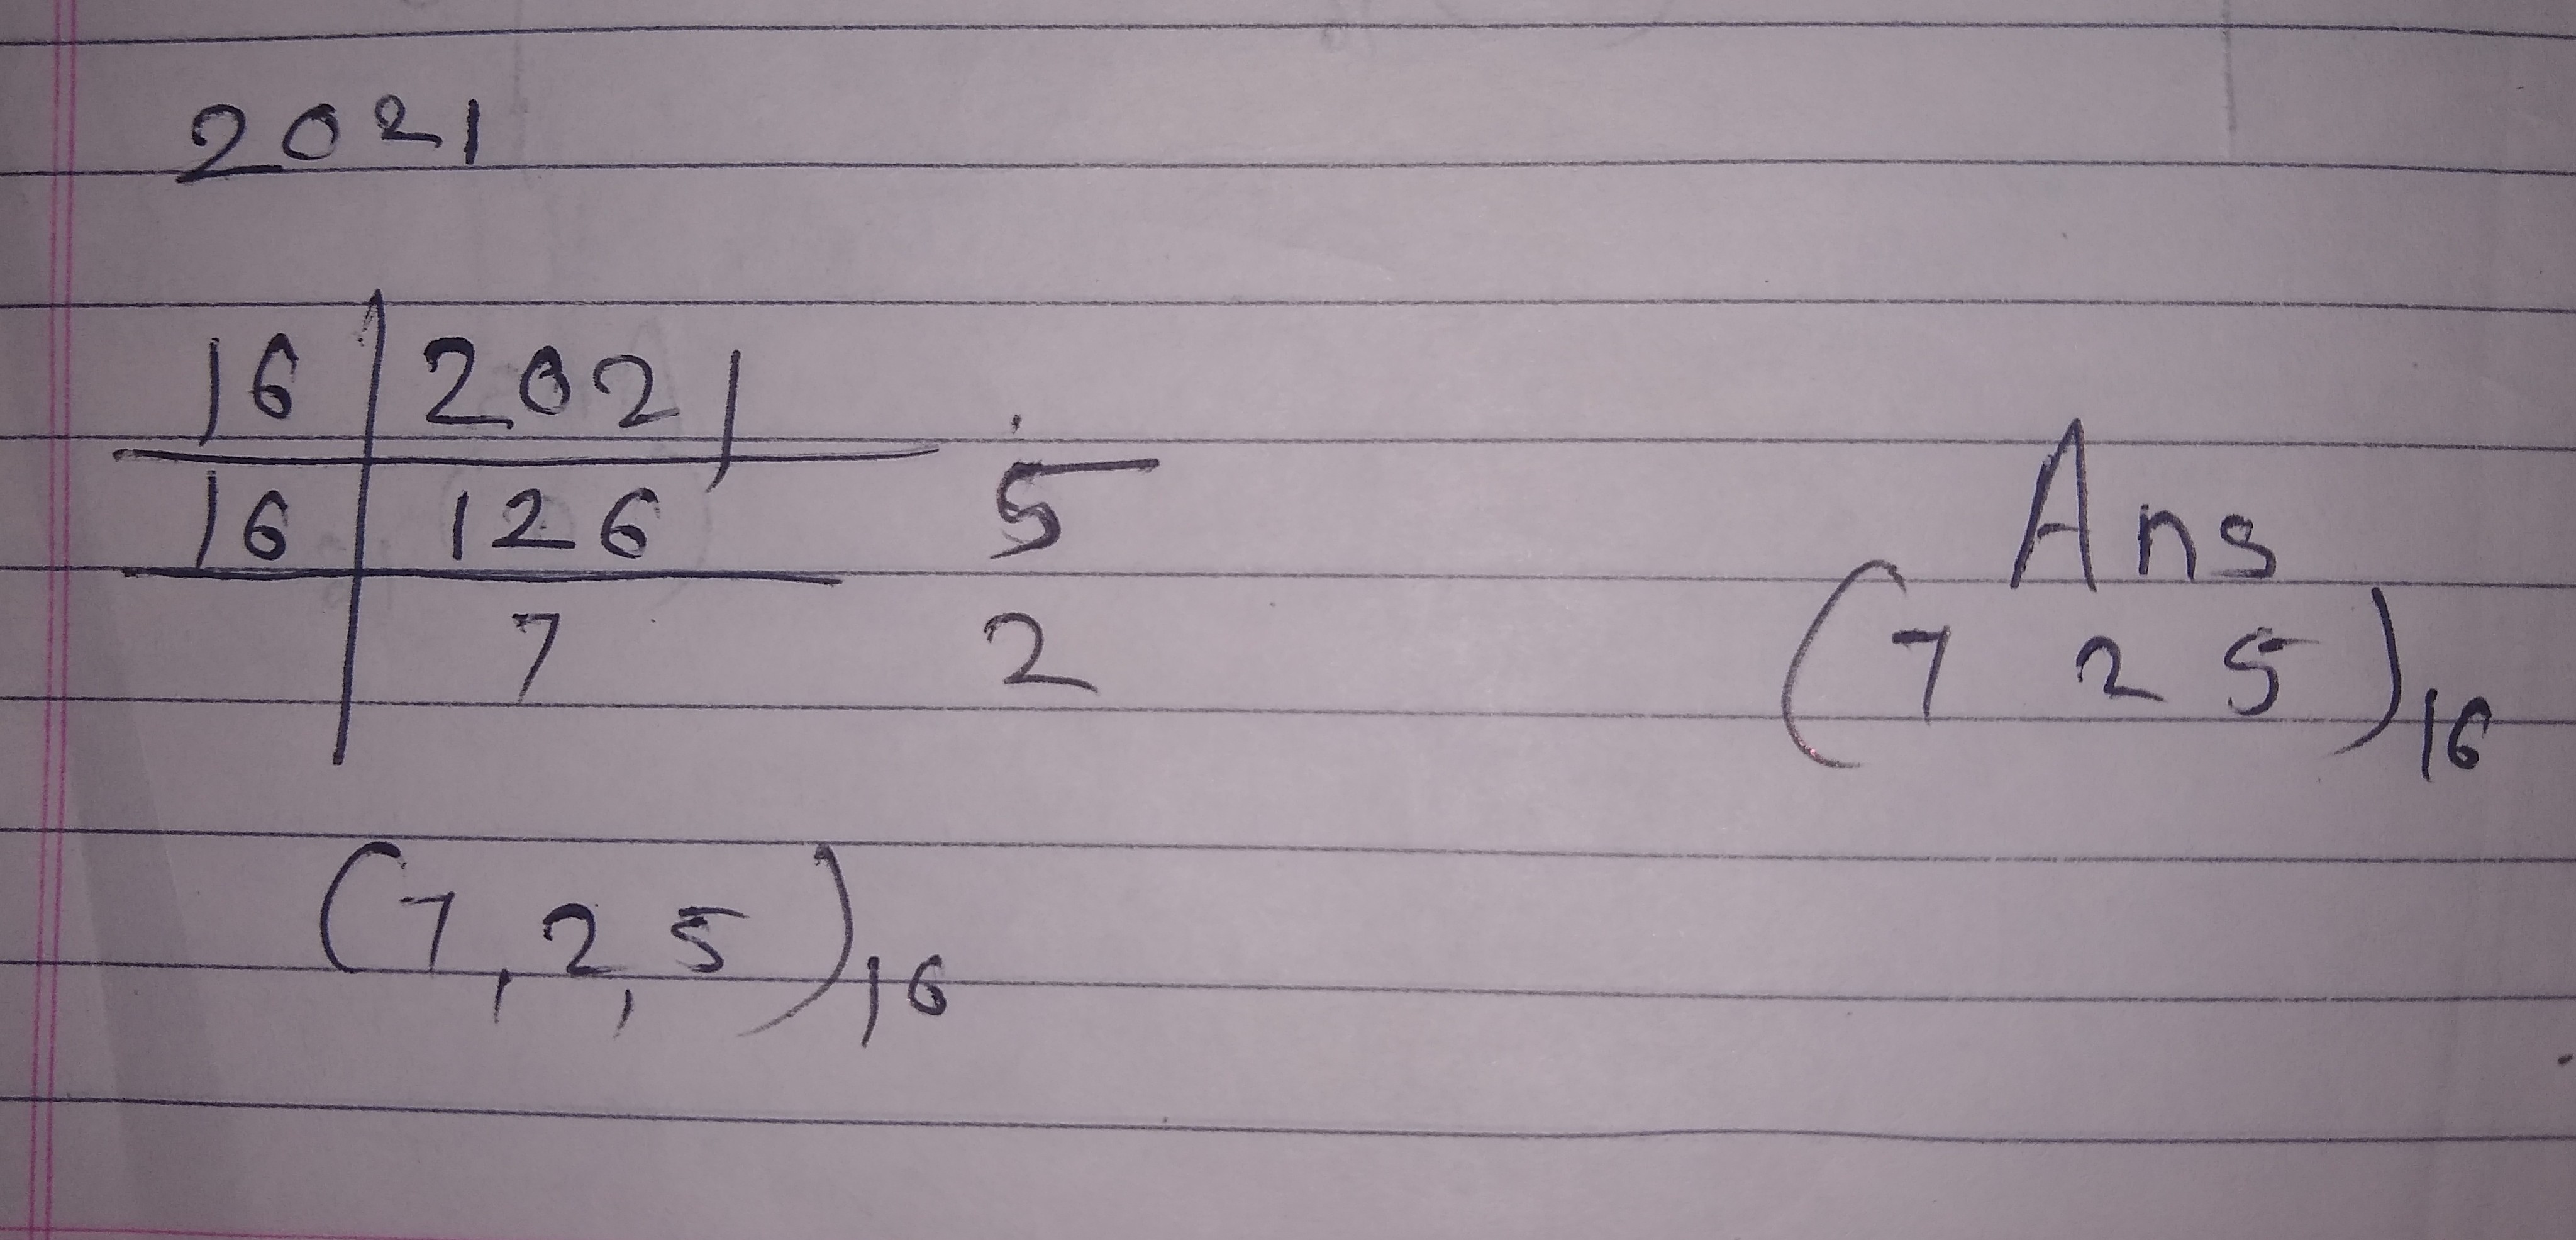 2021
16 2021
16 126 5
7 2
Ans
(7 2 5)16
(7,2,5)16